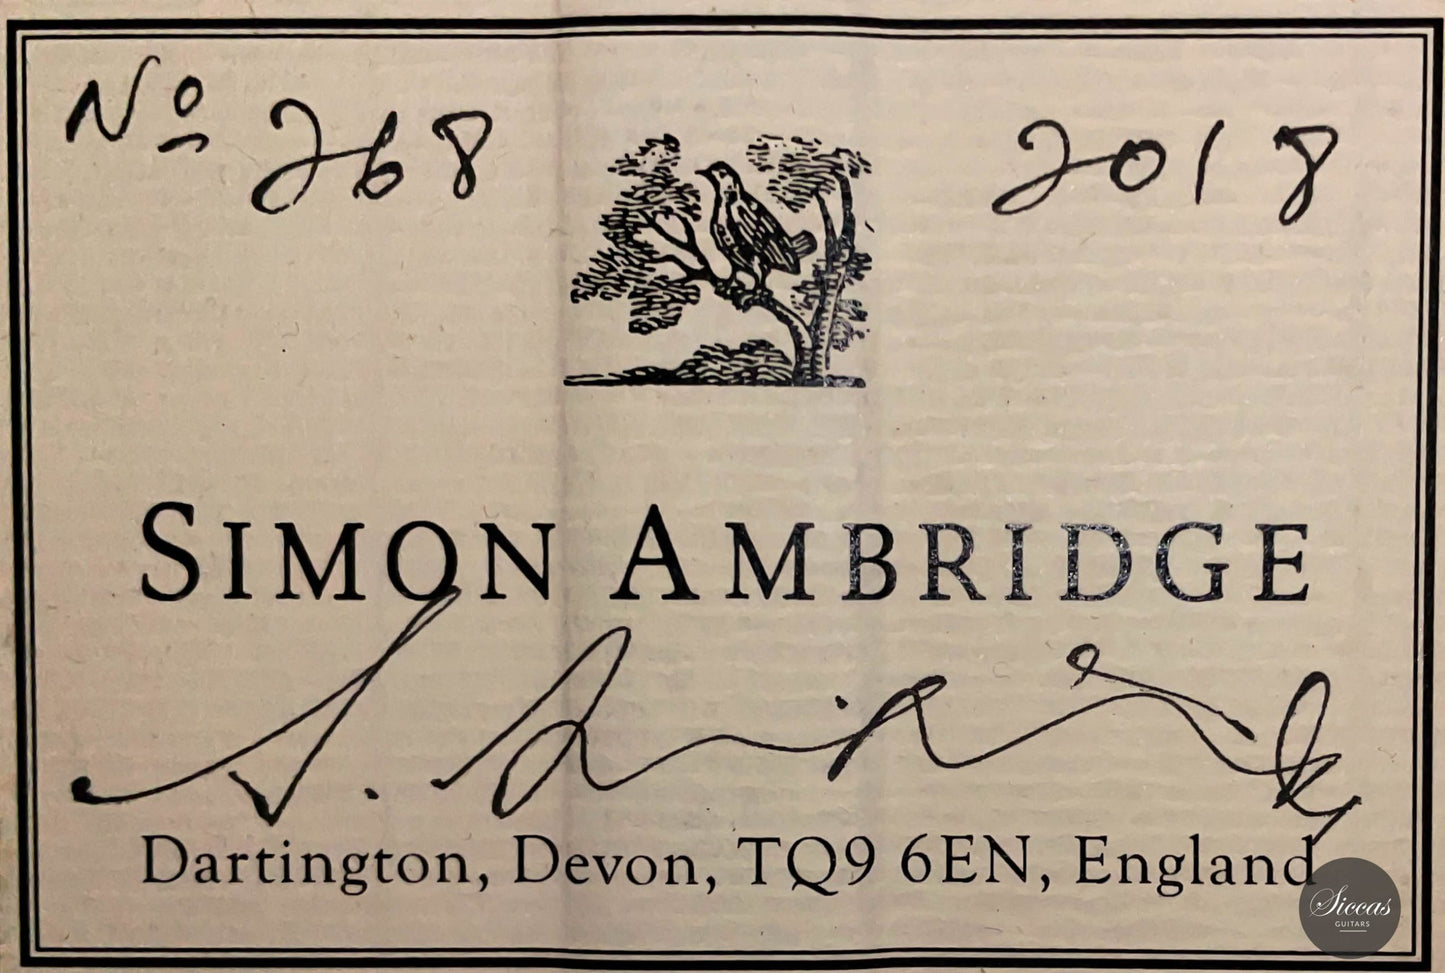 Nº 268 2018
SIMON AMBRIDGE
Dartington, Devon, TQ9 6EN, England
Siccas
GUITARS